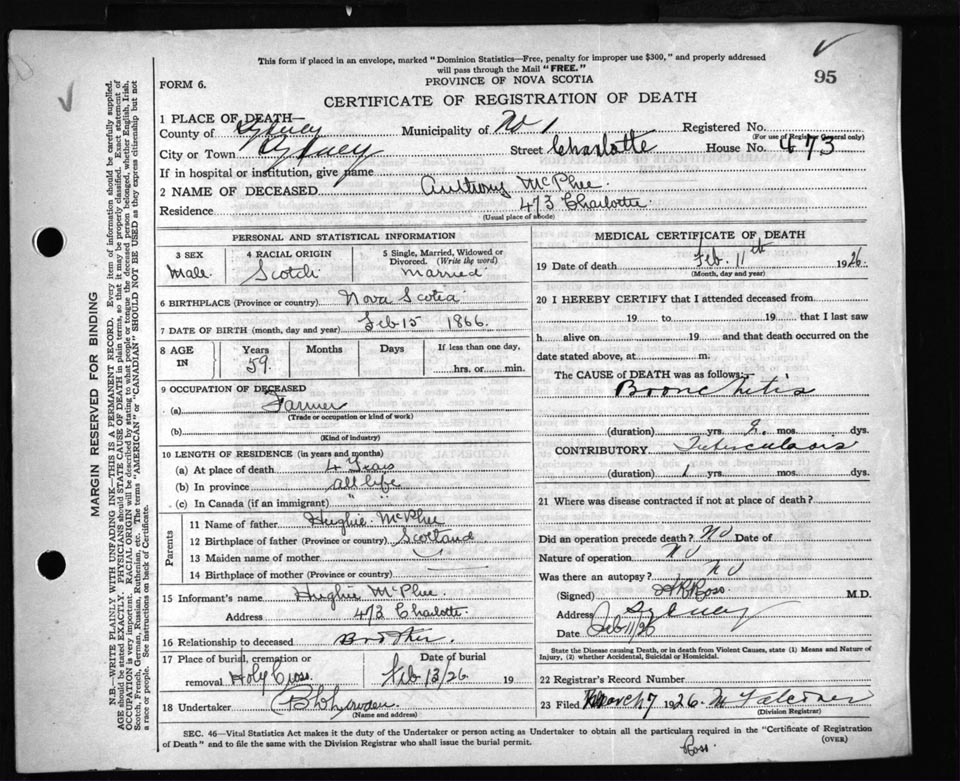 This form if placed in an envelope, marked "Dominion Statistics—Free, penalty for improper use $300," and properly addressed
will pass through the Mail "FREE."
95
FORM 6.
PROVINCE OF NOVA SCOTIA
CERTIFICATE OF REGISTRATION OF DEATH
1 PLACE OF DEATH—
County of Sydney Municipality of No 1 Registered No.
(For use of Registrar General only)
City or Town Sydney Street Charlotte House No. 473
If in hospital or institution, give name
2 NAME OF DECEASED Anthony McPhee
Residence 473 Charlotte
(Usual place of abode)
PERSONAL AND STATISTICAL INFORMATION
3 SEX 4 RACIAL ORIGIN 5 Single, Married, Widowed or Divorced. (Write the word)
Male Scotch Married
6 BIRTHPLACE (Province or country) Nova Scotia
7 DATE OF BIRTH (month, day and year) Feb 15 1866.
8 AGE IN Years Months Days If less than one day,
59. hrs. or min.
9 OCCUPATION OF DECEASED
(a) Farmer
(Trade or occupation or kind of work)
(b)
(Kind of industry)
10 LENGTH OF RESIDENCE (in years and months)
(a) At place of death 4 Years
(b) In province all life
(c) In Canada (if an immigrant) "
Parents
11 Name of father Hughie McPhee
12 Birthplace of father (Province or country) Scotland
13 Maiden name of mother
14 Birthplace of mother (Province or country)
15 Informant's name Hughie McPhee
Address 473 Charlotte
16 Relationship to deceased Brother.
17 Place of burial, cremation or removal Holy Cross Date of burial Feb 13/26 19
18 Undertaker
(Name and address)
MEDICAL CERTIFICATE OF DEATH
19 Date of death Feb. 11th 1926.
(Month, day and year)
20 I HEREBY CERTIFY that I attended deceased from
19 to 19 that I last saw
h alive on 19 and that death occurred on the
date stated above, at m.
The CAUSE of DEATH was as follows:—
Bronchitis
(duration) yrs. mos. dys.
CONTRIBUTORY Tuberculosis
(duration) 1 yrs. mos. dys.
21 Where was disease contracted if not at place of death?
Did an operation precede death? No Date of
Nature of operation No
Was there an autopsy? No
(Signed) Ross M.D.
Address Sydney
Date Feb 11/26
State the Disease causing Death, or in death from Violent Causes, state (1) Means and Nature of
Injury, (2) whether Accidental, Suicidal or Homicidal.
22 Registrar's Record Number
23 Filed March 7 1926
(Division Registrar)
SEC. 46—Vital Statistics Act makes it the duty of the Undertaker or person acting as Undertaker to obtain all the particulars required in the "Certificate of Registration
of Death" and to file the same with the Division Registrar who shall issue the burial permit.
(OVER)
Ross.
MARGIN RESERVED FOR BINDING
N.B.—WRITE PLAINLY WITH UNFADING INK—THIS IS A PERMANENT RECORD. Every item of information should be carefully supplied.
AGE should be stated EXACTLY. PHYSICIANS should STATE CAUSE OF DEATH in plain terms, so that it may be properly classified. Exact statement of
OCCUPATION is very important. RACIAL ORIGIN will be described by stating to what people or tongue the deceased person belonged, whether English, Irish,
Scotch, French, German, Russian, Ruthenian, etc. The terms "AMERICAN" or "CANADIAN" SHOULD NOT BE USED as they express citizenship but not
a race or people. See instructions on back of Certificate.